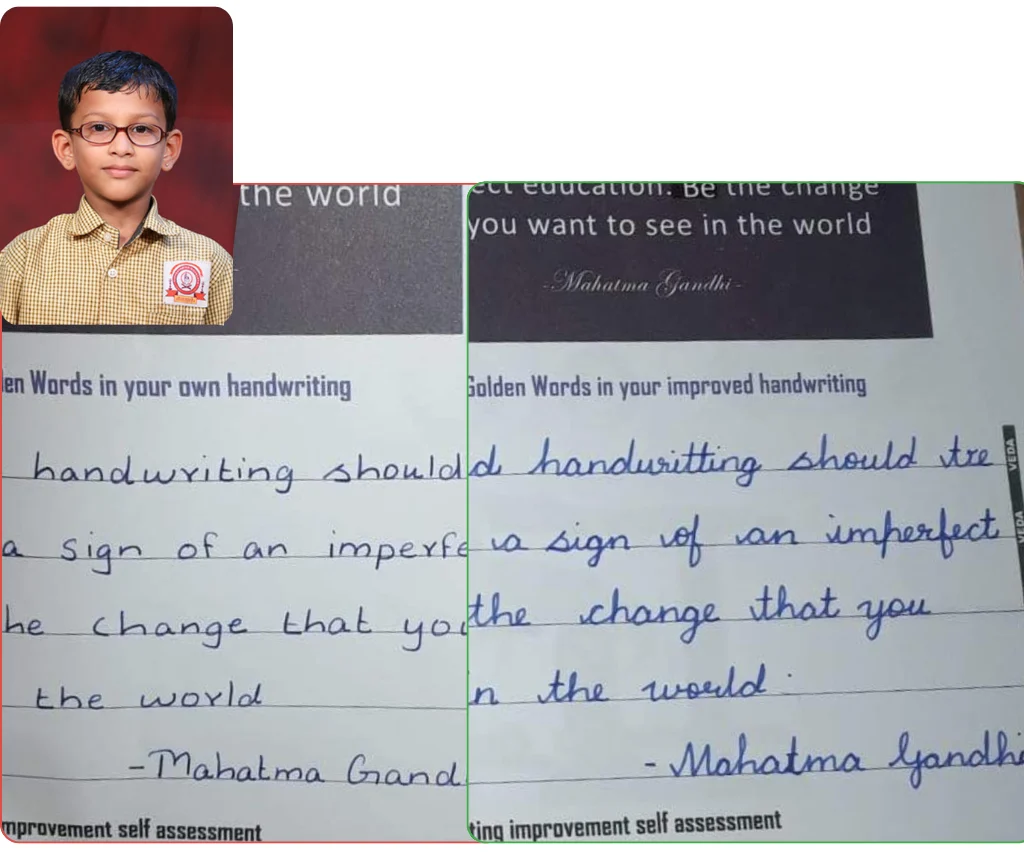 the world
en Words in your own handwriting
handwriting should
a sign of an imperfe
he change that you
the world
-Mahatma Gand
mprovement self assessment
ect education. Be the change
you want to see in the world
-Mahatma Gandhi-
Golden Words in your improved handwriting
d handwritting should tre
a sign of an imperfect
the change that you
n the world.
- Mahatma Gandhi
ting improvement self assessment
VEDA
VEDA